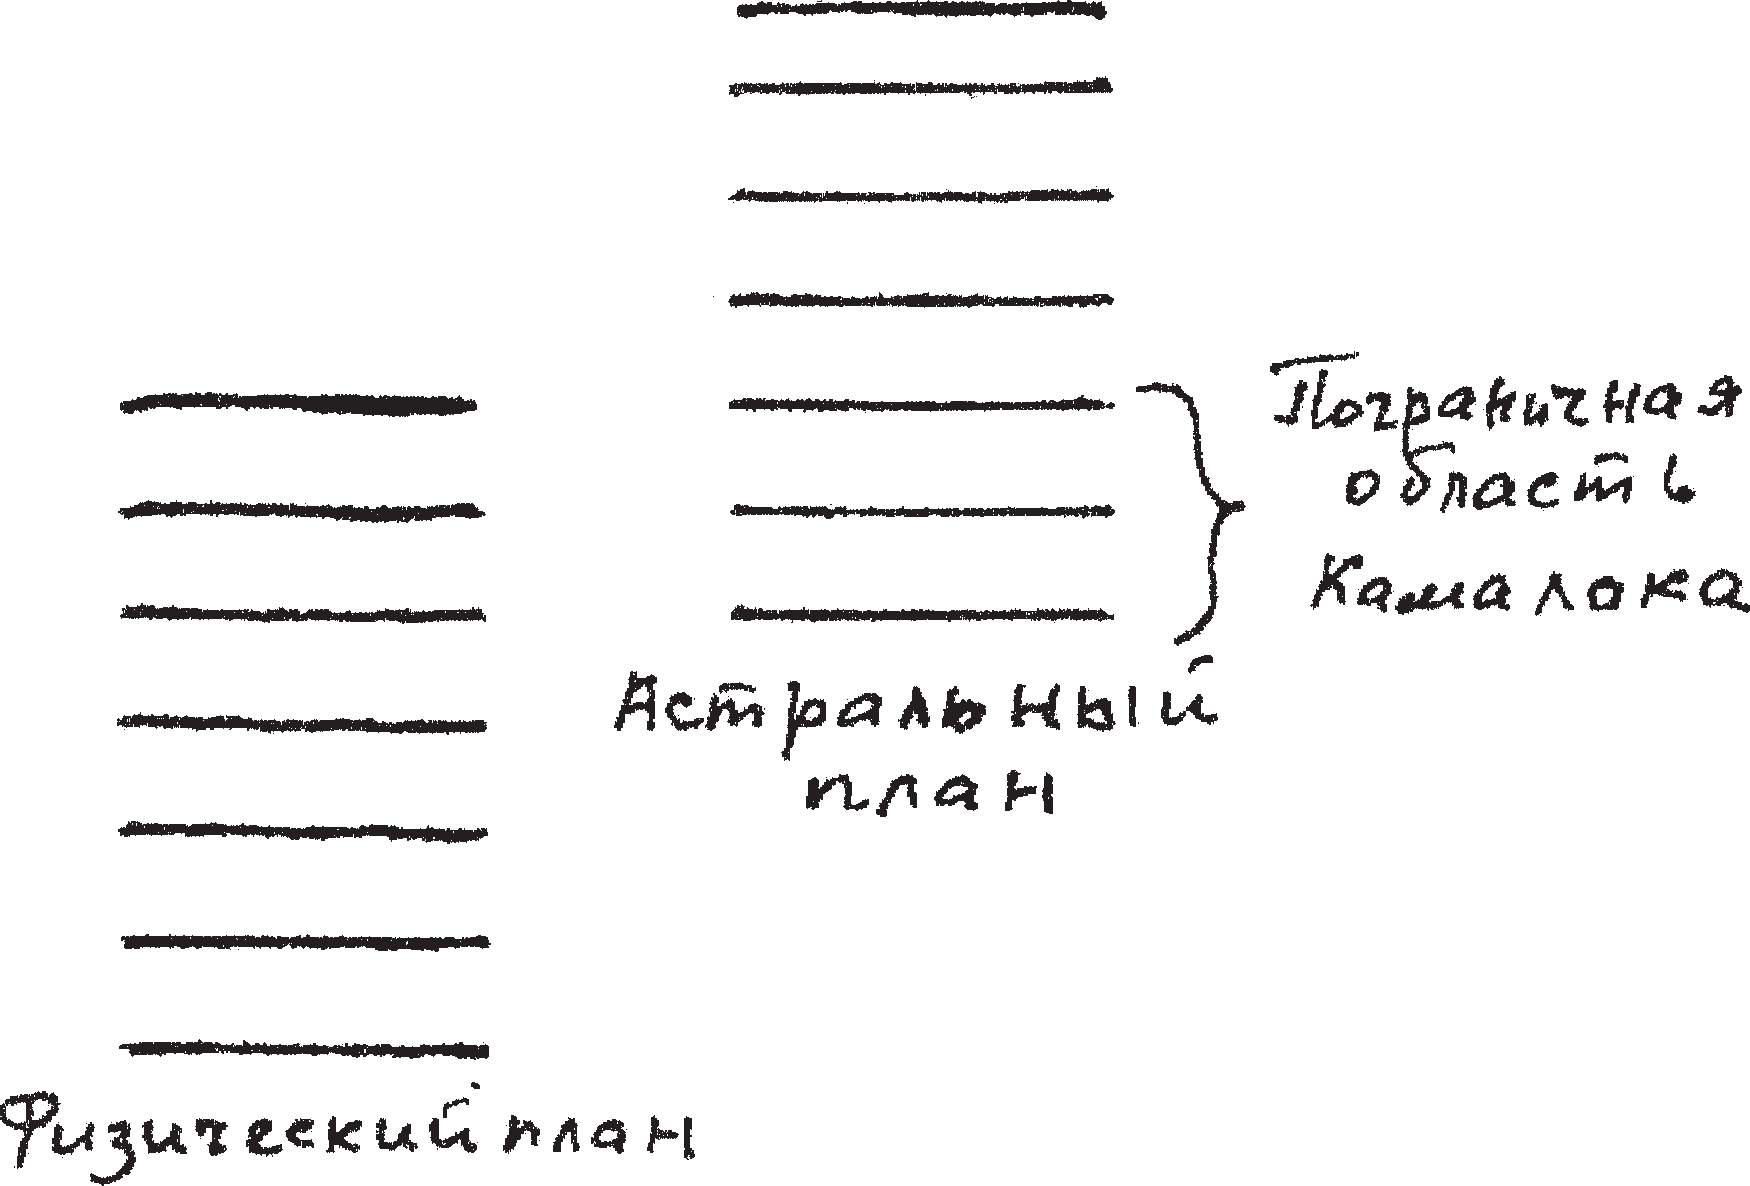 Пограничная
область
Камалока
Астральный
план
Физический план